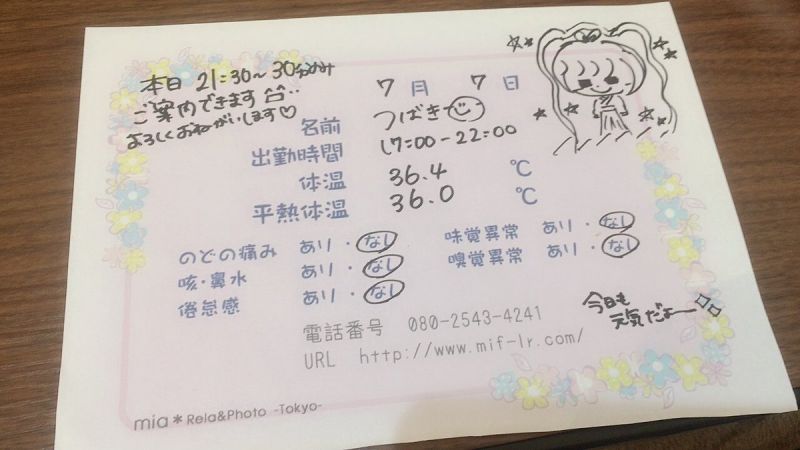 本日 21:30～30分のみ
ご案内できます
よろしくおねがいします♡
7月 7日
名前 つばき
出勤時間 17:00-22:00
体温 36.4 ℃
平熱体温 36.0 ℃
のどの痛み あり・なし
咳・鼻水 あり・なし
倦怠感 あり・なし
味覚異常 あり・なし
嗅覚異常 あり・なし
今日も
元気だよー
電話番号 080-2543-4241
URL http://www.mif-lr.com/
mia＊Rela&Photo -Tokyo-